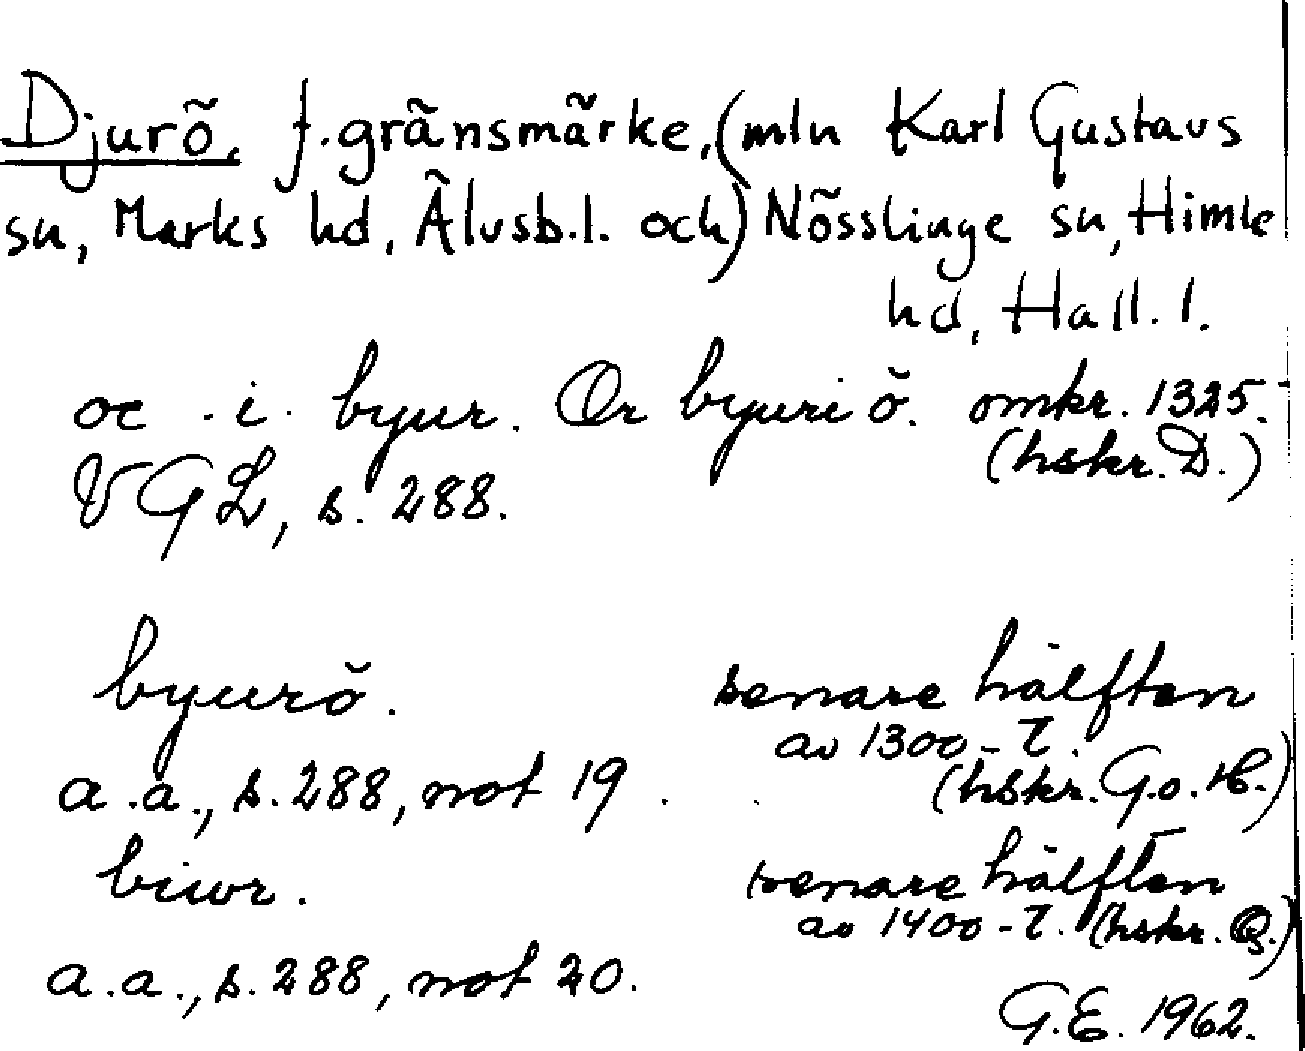 Djurö, f. gränsmärke, (mln Karl Gustavs
sn, Marks hd, Älvsb.l. och) Nösslinge sn, Himle
hd, Hall. l.
oc - i. byur. Or byuri ö. omkr. 1325.
(hskr. D.)
VGL, s. 288.
byurö. senare hälften
av 1300-t.
a.a., s. 288, not 19. (hskr. G.o.H.)
biwr. senare hälften
av 1400-t. (hskr. Q.)
a.a., s. 288, not 20.
G.E. 1962.